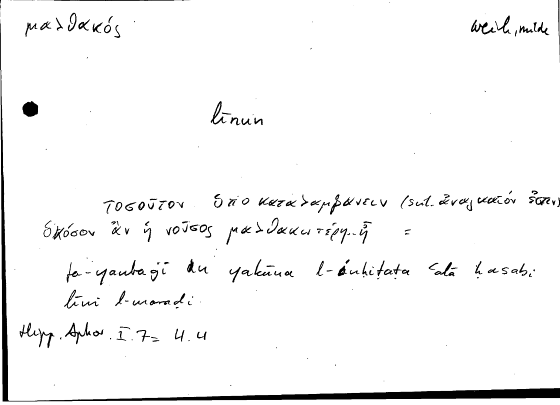 μαλθακός weich, milde
līnun
τοσοῦτον ὑποκαταλαμβάνειν (scil. ἀναγκαῖόν ἐστιν)
ὁκόσον ἂν ἡ νοῦσος μαλθακωτέρη ᾖ =
fa-yanbaġī an yakūna l-inḥiṭāṭa ʿalā ḥasabi
līni l-maraḍi
Hipp. Aphor. I. 7 = 4.4